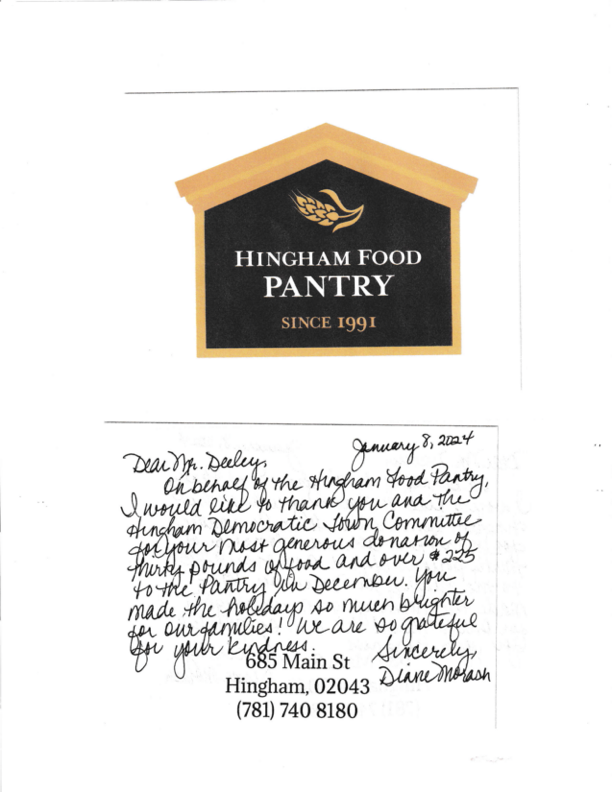 HINGHAM FOOD
PANTRY
SINCE 1991
January 8, 2024
Dear Mr. Deeley,
On behalf of the Hingham Food Pantry,
I would like to thank you and the
Hingham Democratic Town Committee
for your most generous donation of
thirty pounds of food and over $225
to the Pantry in December. You
made the holidays so much brighter
for our families! We are so grateful
for your kindness.
Sincerely,
Diane Morash
685 Main St
Hingham, 02043
(781) 740 8180